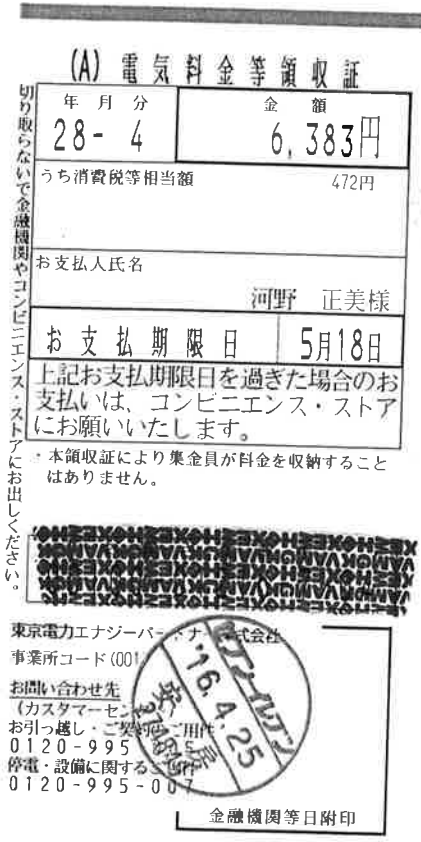 (A) 電気料金等領収証
切り取らないで金融機関やコンビニエンス・ストアにお出しください。
年 月 分
金 額
28- 4
6,383円
うち消費税等相当額
472円
お支払人氏名
河野 正美様
お支払期限日
5月18日
上記お支払期限日を過ぎた場合のお
支払いは、コンビニエンス・ストア
にお願いいたします。
・本領収証により集金員が料金を収納すること
はありません。
東京電力エナジーパートナー株式会社
事業所コード(001
お問い合わせ先
(カスタマーセン
お引っ越し・ご契約のご用件
0120-995
停電・設備に関するご用件
0120-995-007
セブン-イレブン
'16.4.25
金融機関等日附印